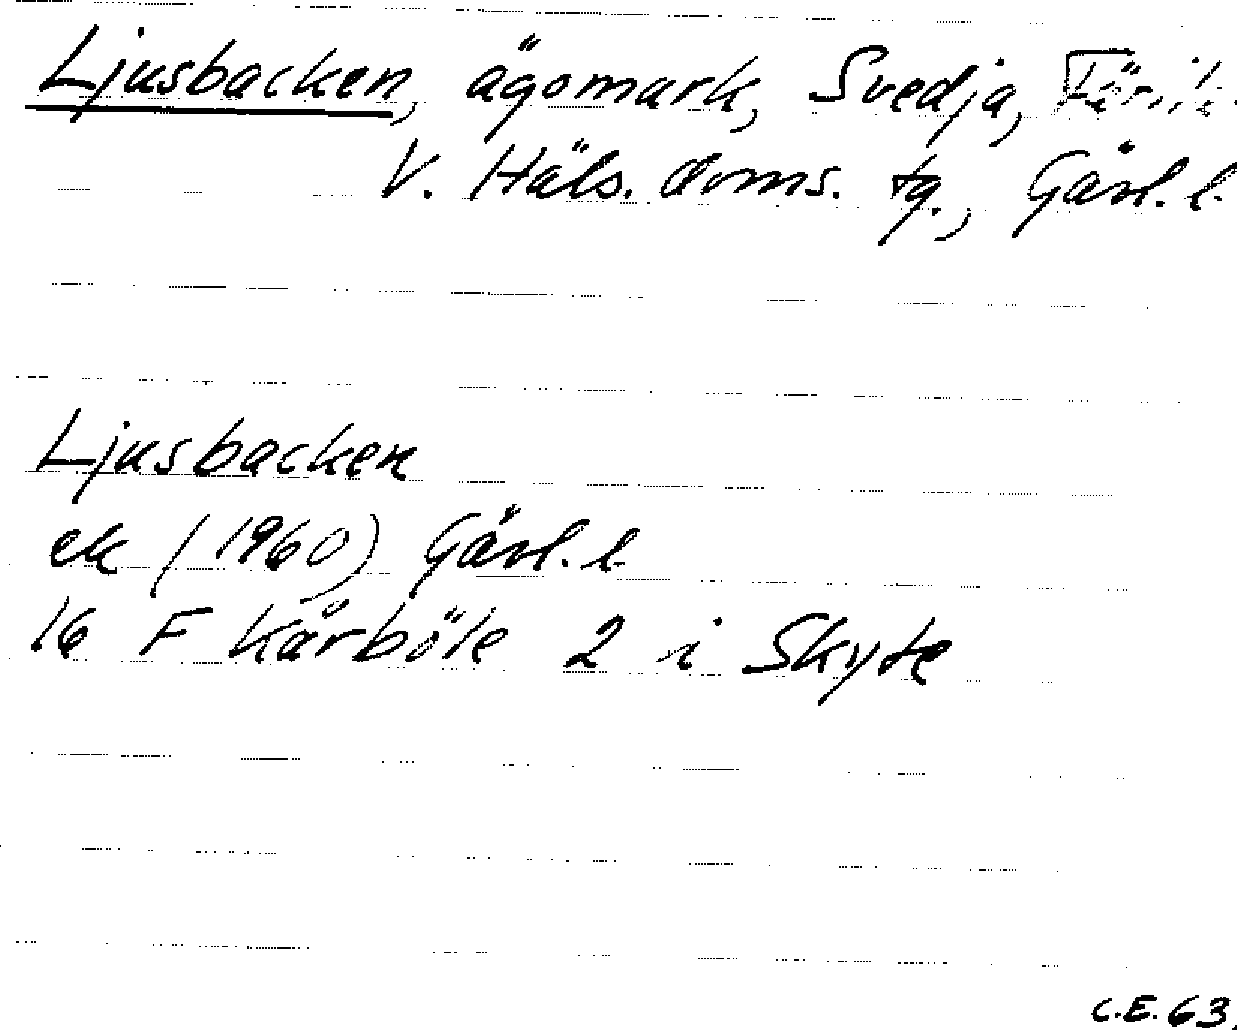 Ljusbacken, ägomark, Svedja, Färila
V. Häls. doms. tg., Gävl. l.
Ljusbacken
ek (1960) Gävl. l.
16 F Kårböle 2 i Skyte
C.E. 63.